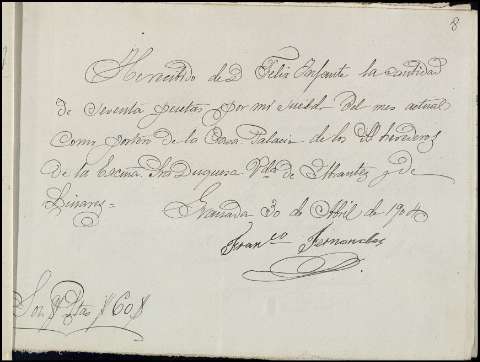 8
He recibido de D Felix Infante la cantidad
de sesenta pesetas por mi sueldo del mes actual
como porton de la Casa Palacio de los Sres herederos
de la Excma. Sra Duquesa Vda de Abrantes y de
Linares=
Granada 30 de Abril de 1904
Franco Fernandez
Son ptas 60